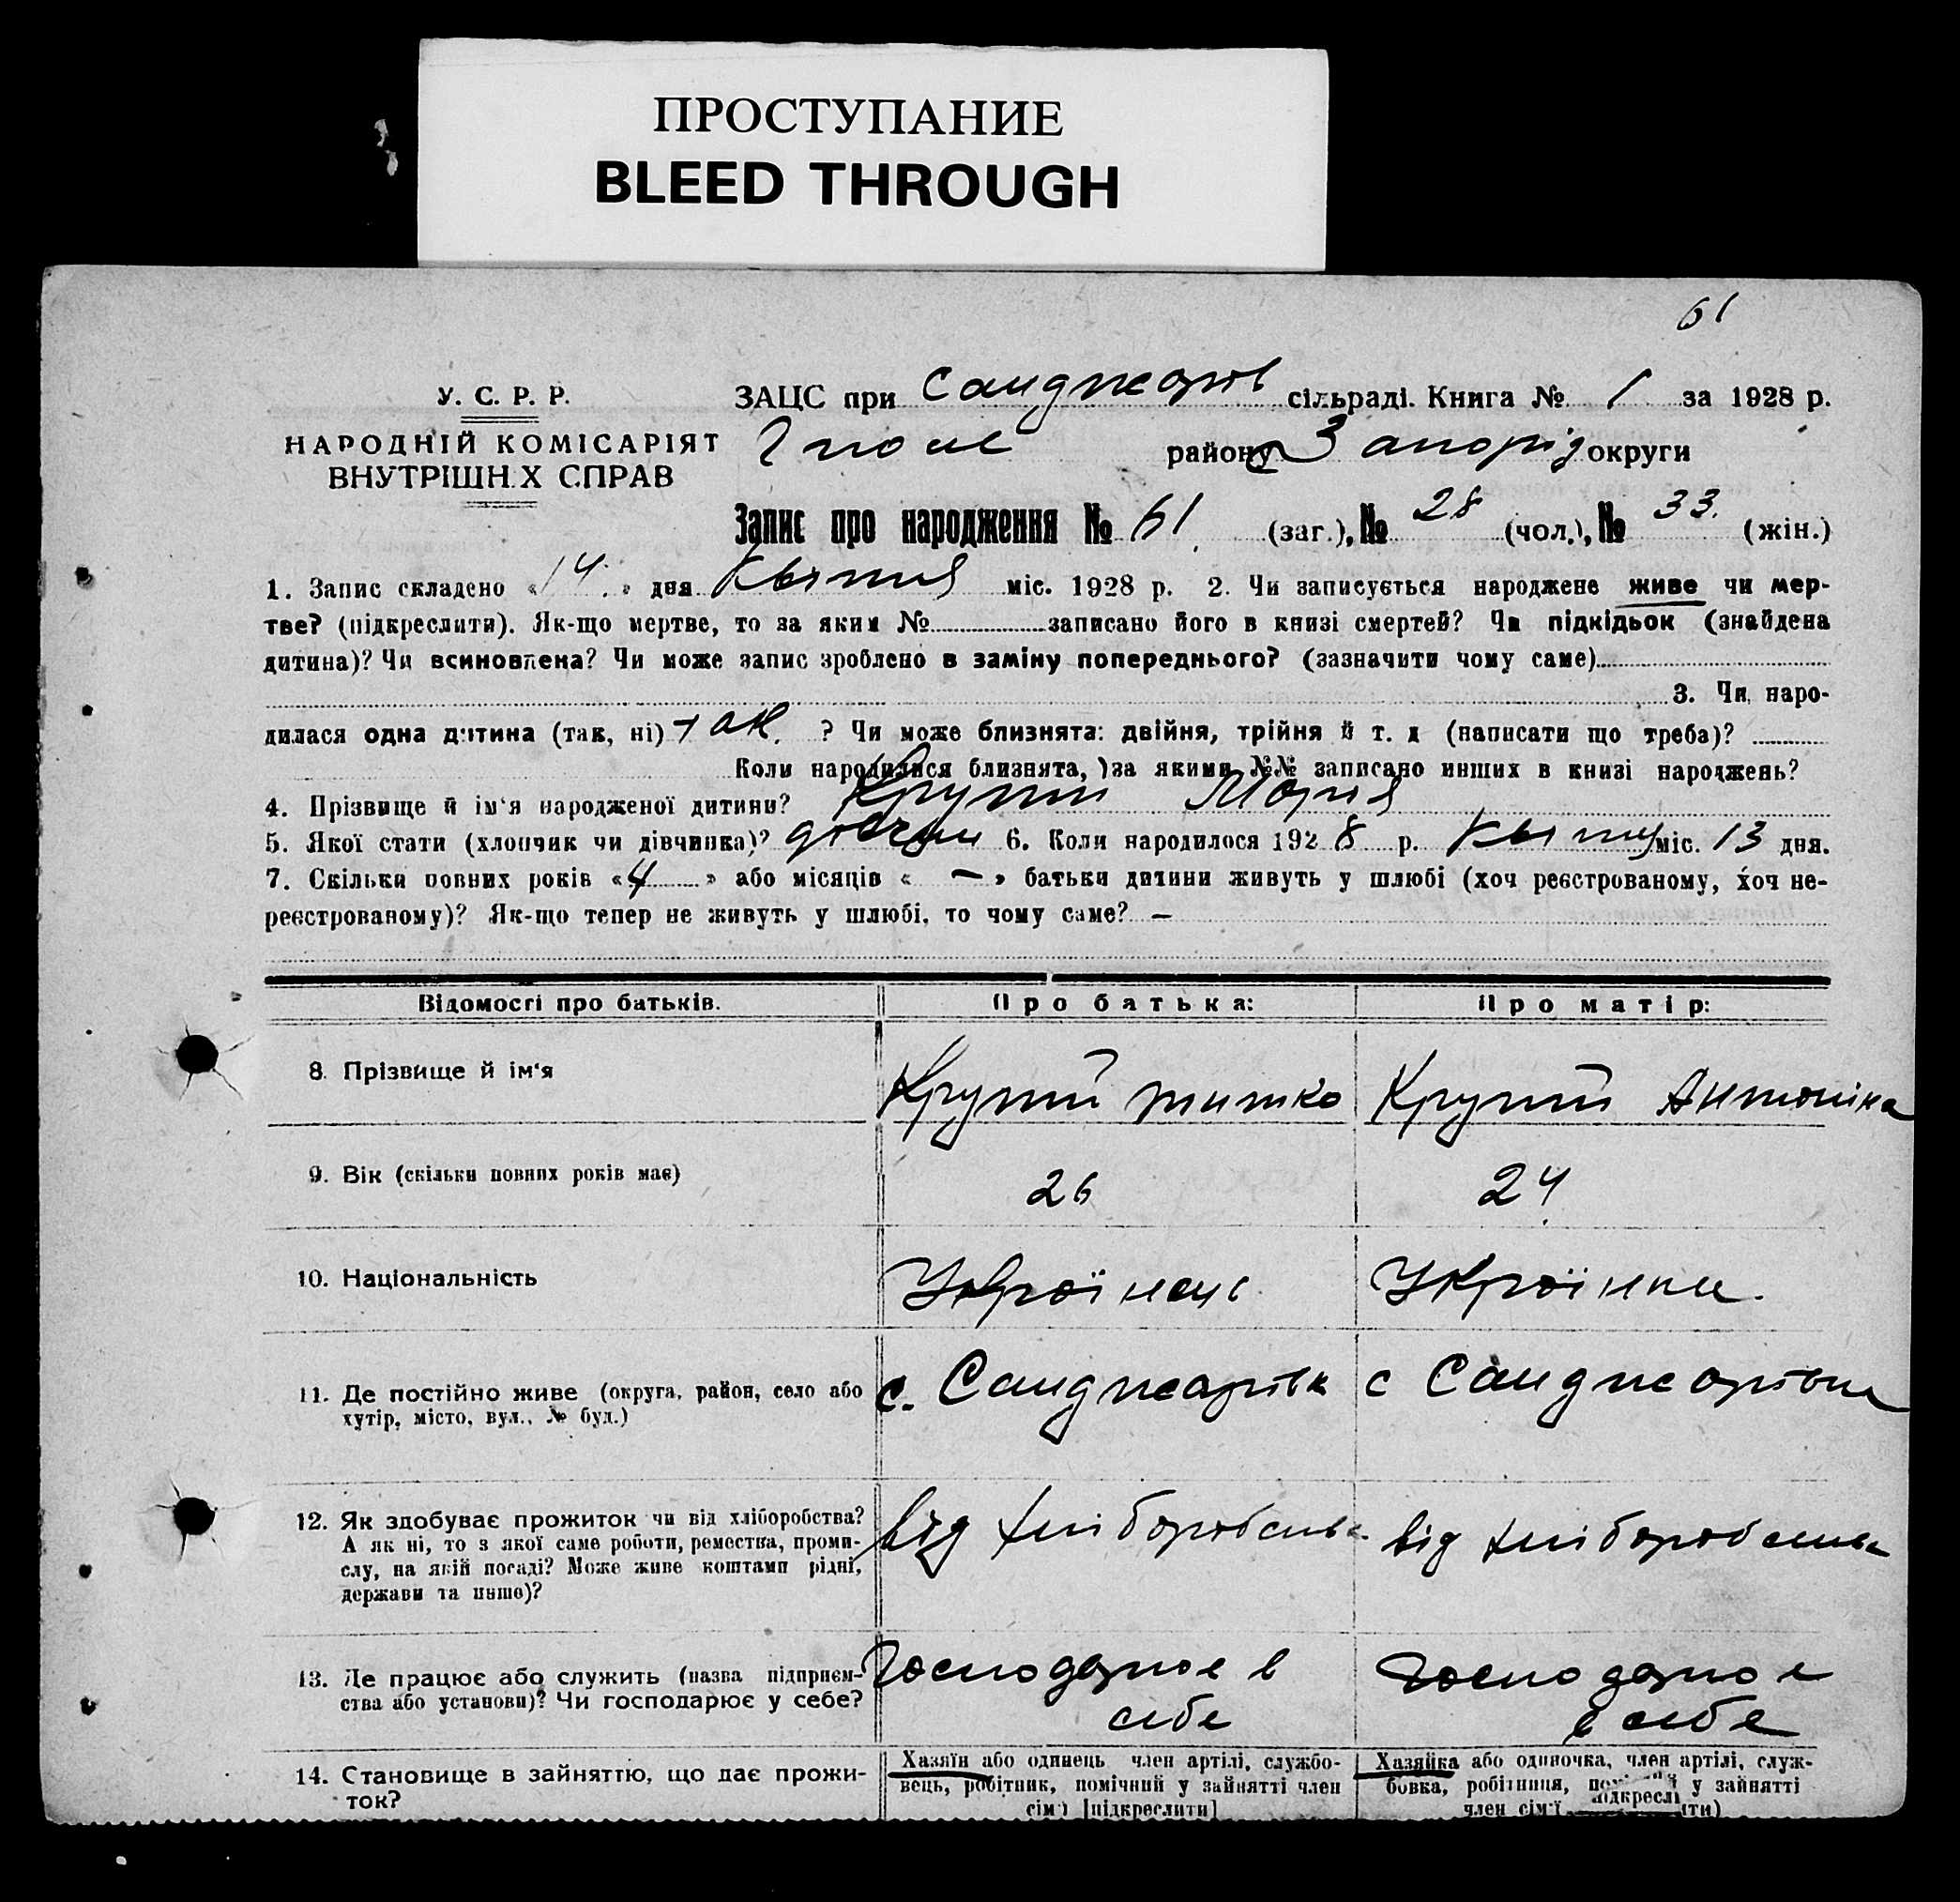 ПРОСТУПАНИЕ
BLEED THROUGH
61
У. С. Р. Р.
НАРОДНІЙ КОМІСАРІЯТ
ВНУТРІШН.Х СПРАВ
ЗАЦС при Санджарів сільраді. Книга № 1 за 1928 р.
району Запоріз округи
Запис про народження № 61 (заг.), № 28 (чол.), № 33. (жін.)
1. Запис складено «14.» дня Квітня міс. 1928 р. 2. Чи записується народжене живе чи мер-
тве? (підкреслити). Як-що мертве, то за яким № записано його в книзі смертей? Чи підкідьок (знайдена
дитина)? Чи всиновлена? Чи може запис зроблено в заміну попереднього? (зазначити чому саме)
3. Чи наро-
дилася одна дитина (так, ні) так. ? Чи може близнята: двійня, трійня й т. д (написати що треба)?
Коли народилися близнята, за якими №№ записано инших в книзі народжень?
4. Прізвище й ім'я народженої дитини? Крупій Марія
5. Якої стати (хлопчик чи дівчинка)? дівчин 6. Коли народилося 1928 р. Квітня міс. 13 дня.
7. Скільки повних років «4» або місяців « – » батьки дитини живуть у шлюбі (хоч реєстрованому, хоч не-
реєстрованому)? Як-що тепер не живуть у шлюбі, то чому саме? –
Відомості про батьків. Про батька: Про матір:
8. Прізвище й ім'я Крупій Тишко Крупій Антоніна
9. Вік (скільки повних років має) 26 24
10. Національність Українець Українка.
11. Де постійно живе (округа, район, село або с. Санджарівк с Санджарівка
хутір, місто, вул., № буд.)
12. Як здобуває прожиток чи від хліборобства? від хліборобства від хліборобства
А як ні, то з якої саме роботи, ремества, проми-
слу, на якій посаді? Може живе коштами рідні,
держави та инше)?
13. Де працює або служить (назва підприєм- Господарює в Господарює
ства або установи)? Чи господарює у себе? себе в себе
14. Становище в зайняттю, що дає прожи-
ток?
Хазяїн або одинець член артілі, службо-
вець, робітник, помічний у зайнятті член
сім'ї [підкреслити]
Хазяйка або одиночка, член артілі, служ-
бовка, робітниця, у зайнятті
член сім'ї